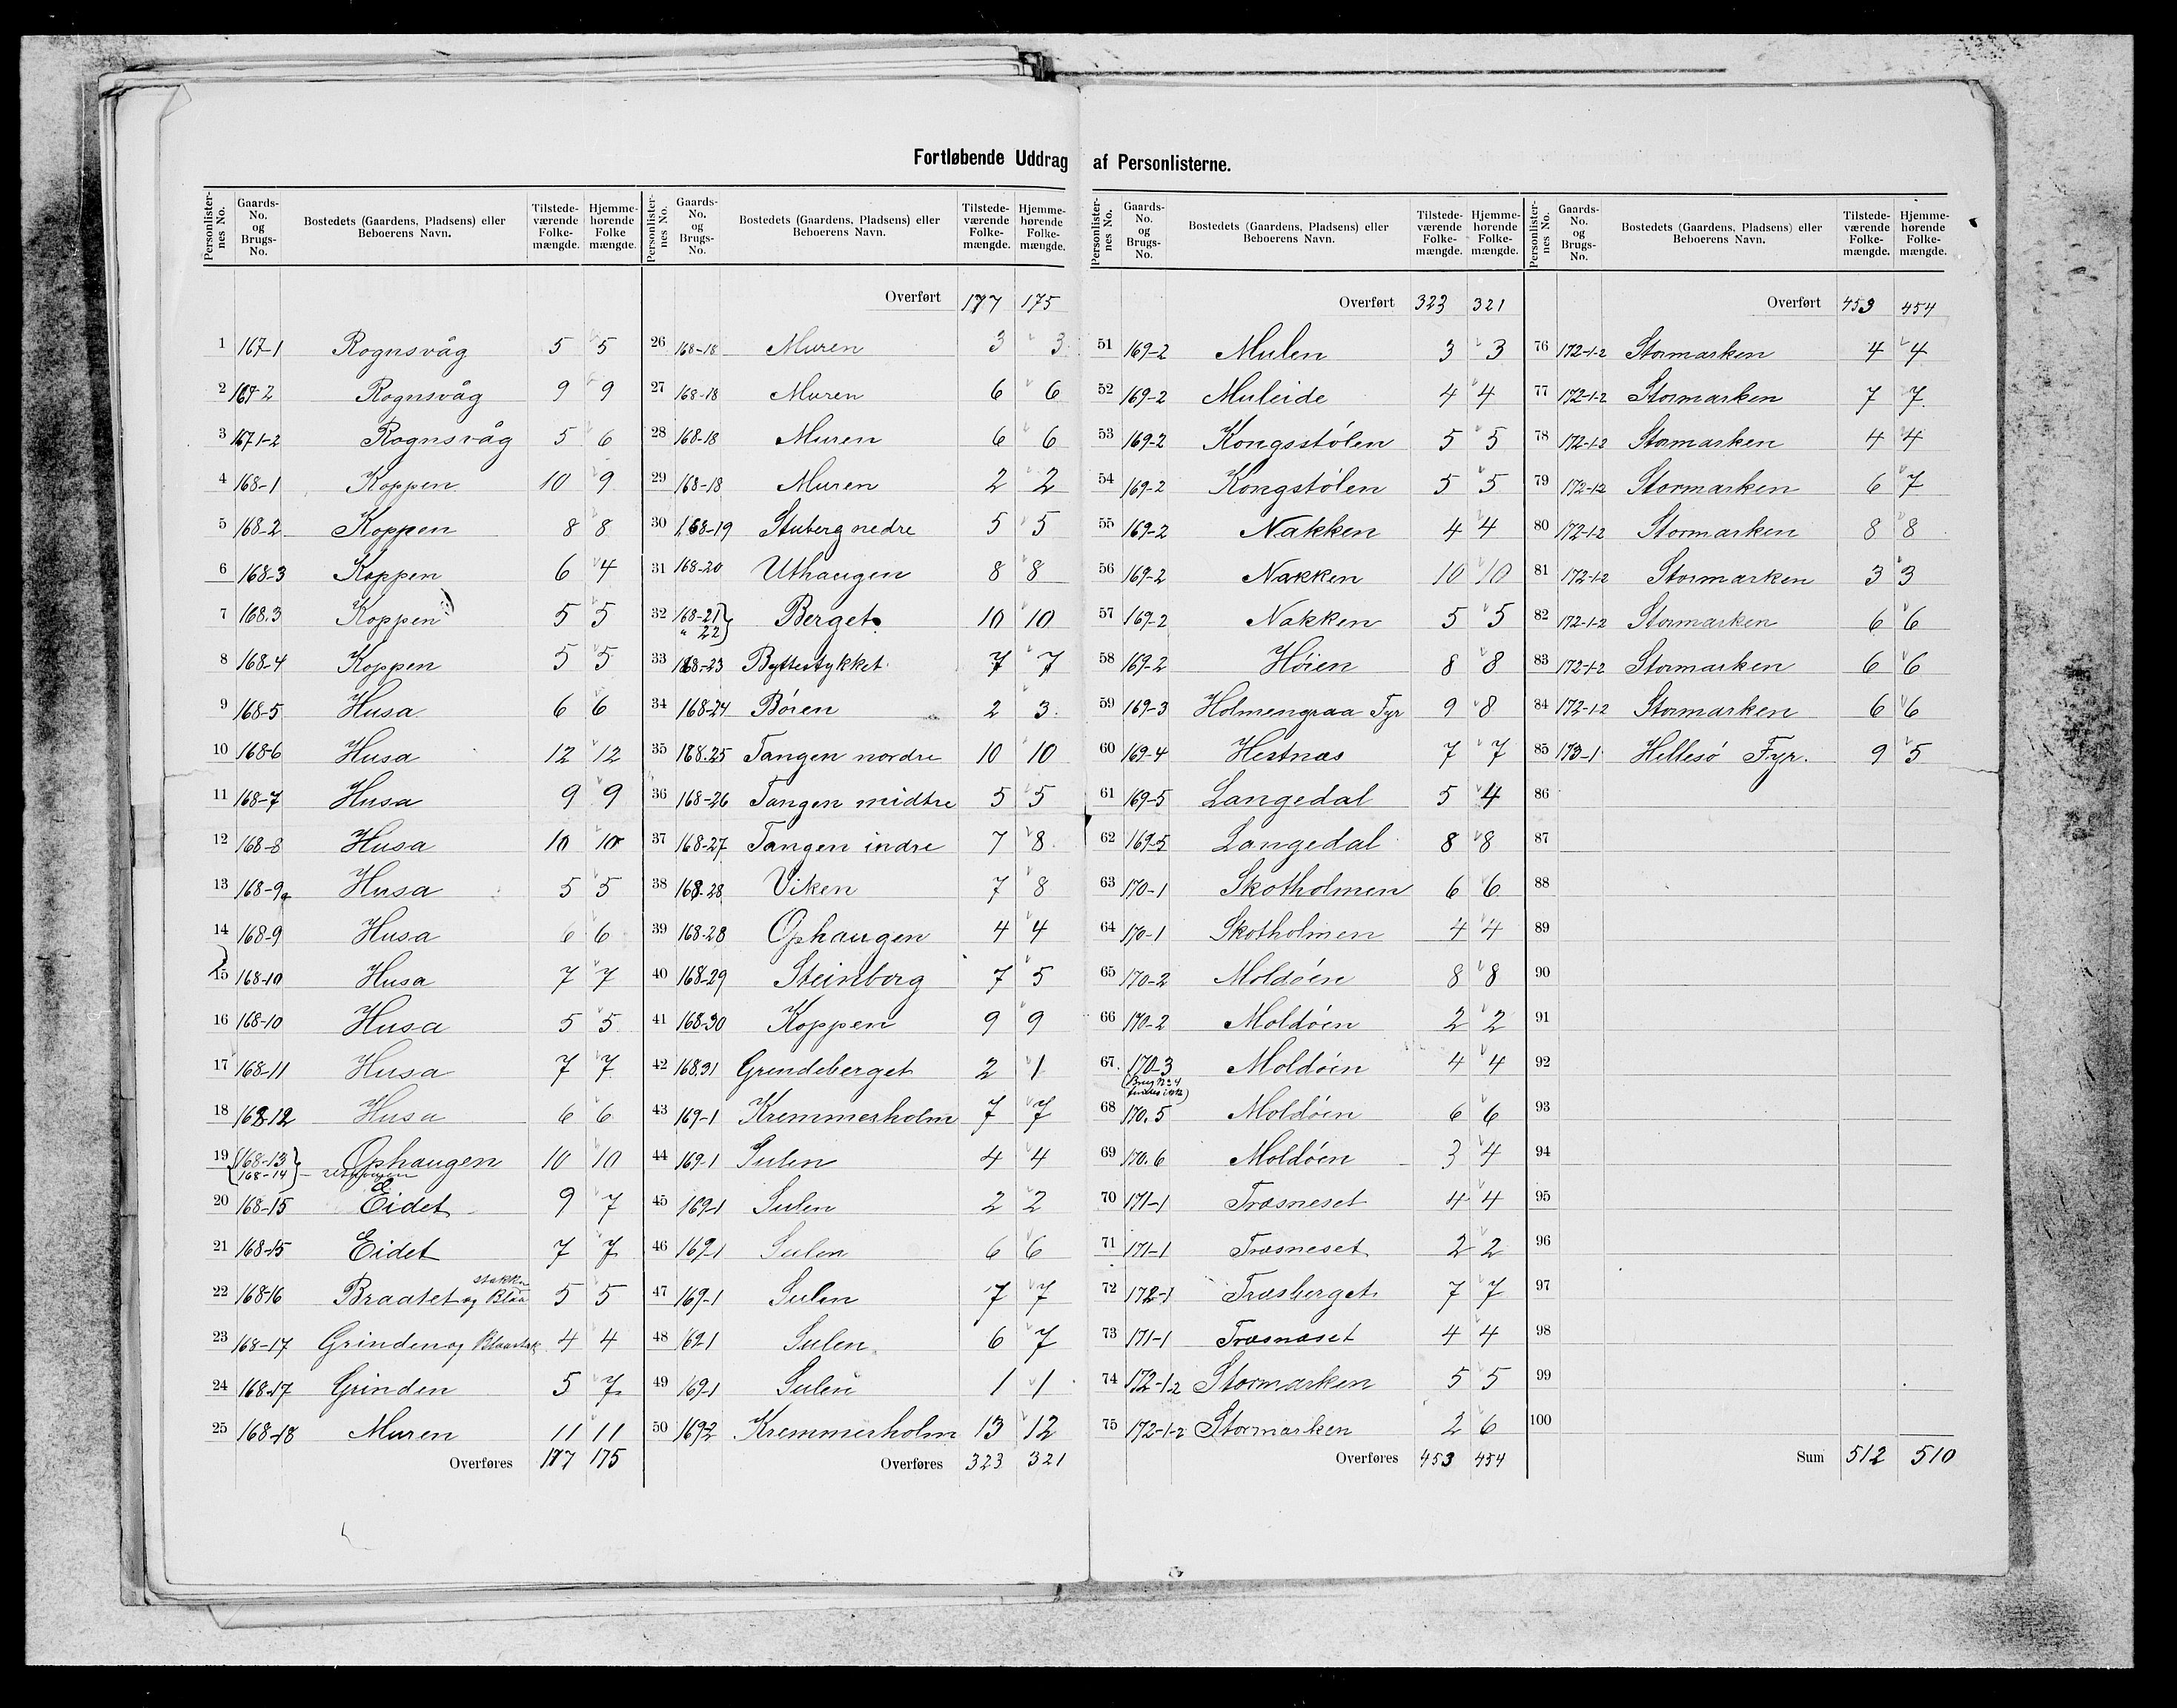 Fortløbende Uddrag af Personlisterne.
Personlister-nes No. | Gaards-No. og Brugs-No. | Bostedets (Gaardens, Pladsens) eller Beboerens Navn. | Tilstede-værende Folke-mængde. | Hjemme-hørende Folke mængde.
1 167-1 Rognsvåg 5 5
2 167-2 Rognsvåg 9 9
3 167 1-2 Rognsvåg 5 6
4 168-1 Koppen 10 9
5 168-2 Koppen 8 8
6 168-3 Koppen 6 4
7 168.3 Koppen 5 5
8 168-4 Koppen 5 5
9 168-5 Husa 6 6
10 168-6 Husa 12 12
11 168-7 Husa 9 9
12 168-8 Husa 10 10
13 168-9a Husa 5 5
14 168-9 Husa 6 6
15 168-10 Husa 7 7
16 168-10 Husa 5 5
17 168-11 Husa 7 7
18 168-12 Husa 6 6
19 168-13 Ophaugen 10 10
168-14 –
20 168-15 Eidet 9 7
21 168-15 Eidet 7 7
22 168-16 Braatet og Blaa stakken 5 5
23 168-17 Grinden og Blaastak 4 4
24 168-17 Grinden 5 7
25 168-18 Muren 11 11
Overføres 177 175
Personlister-nes No. | Gaards-No. og Brugs-No. | Bostedets (Gaardens, Pladsens) eller Beboerens Navn. | Tilstede-værende Folke-mængde. | Hjemme-hørende Folke-mængde.
Overført 177 175
26 168-18 Muren 3 3
27 168-18 Muren 6 6
28 168-18 Muren 6 6
29 168-18 Muren 2 2
30 168-19 Stuberg nedre 5 5
31 168-20 Uthaugen 8 8
32 168-21 Berget 10 10
" 22
33 168-23 Byttestykket 7 7
34 168-24 Børen 2 3
35 168.25 Tangen nordre 10 10
36 168-26 Tangen midtre 5 5
37 168-27 Tangen indre 7 8
38 168.28 Viken 7 8
39 168-28 Ophaugen 4 4
40 168-29 Steinborg 7 5
41 168-30 Koppen 9 9
42 168.31 Grindeberget 2 1
43 169-1 Kremmerholm 7 7
44 169-1 Sulen 4 4
45 169-1 Sulen 2 2
46 169-1 Sulen 6 6
47 169-1 Sulen 7 7
48 169-1 Sulen 6 7
49 169-1 Sulen 1 1
50 169-2 Kremmerholm 13 12
Overføres 323 321
Personlister-nes No. | Gaards-No. og Brugs-No. | Bostedets (Gaardens, Pladsens) eller Beboerens Navn. | Tilstede-værende Folke-mængde. | Hjemme-hørende Folke-mængde.
Overført 323 321
51 169-2 Mulen 3 3
52 169-2 Muleide 4 4
53 169-2 Kongsstølen 5 5
54 169-2 Kongstølen 5 5
55 169-2 Nakken 4 4
56 169-2 Nakken 10 10
57 169-2 Nakken 5 5
58 169-2 Høien 8 8
59 169-3 Holmengraa Fyr 9 8
60 169-4 Hestnæs 7 7
61 169-5 Langedal 5 4
62 169-5 Langedal 8 8
63 170-1 Skotholmen 6 6
64 170-1 Skotholmen 4 4
65 170-2 Moldøen 8 8
66 170-2 Moldøen 2 2
67 170-3 Moldøen 4 4
(Brug No 4 findes ikke)
68 170.5 Moldøen 6 6
69 170.6 Moldøen 3 4
70 171-1 Træsneset 4 4
71 171-1 Træsneset 2 2
72 172-1 Træsberget 7 7
73 171-1 Træsnæset 4 4
74 172-1-2 Stormarken 5 5
75 172-1-2 Stormarken 2 6
Overføres 453 454
Personlister-nes No. | Gaards-No. og Brugs-No. | Bostedets (Gaardens, Pladsens) eller Beboerens Navn. | Tilstede-værende Folke-mængde. | Hjemme-hørende Folke-mængde.
Overført 453 454
76 172-1-2 Stormarken 4 4
77 172-1-2 Stormarken 7 7
78 172-1-2 Stormarken 4 4
79 172-1-2 Stormarken 6 7
80 172-1-2 Stormarken 8 8
81 172-1-2 Stormarken 3 3
82 172-1-2 Stormarken 6 6
83 172-1-2 Stormarken 6 6
84 172-1-2 Stormarken 6 6
85 173-1 Hellesø Fyr. 9 5
86
87
88
89
90
91
92
93
94
95
96
97
98
99
100
Sum 512 510